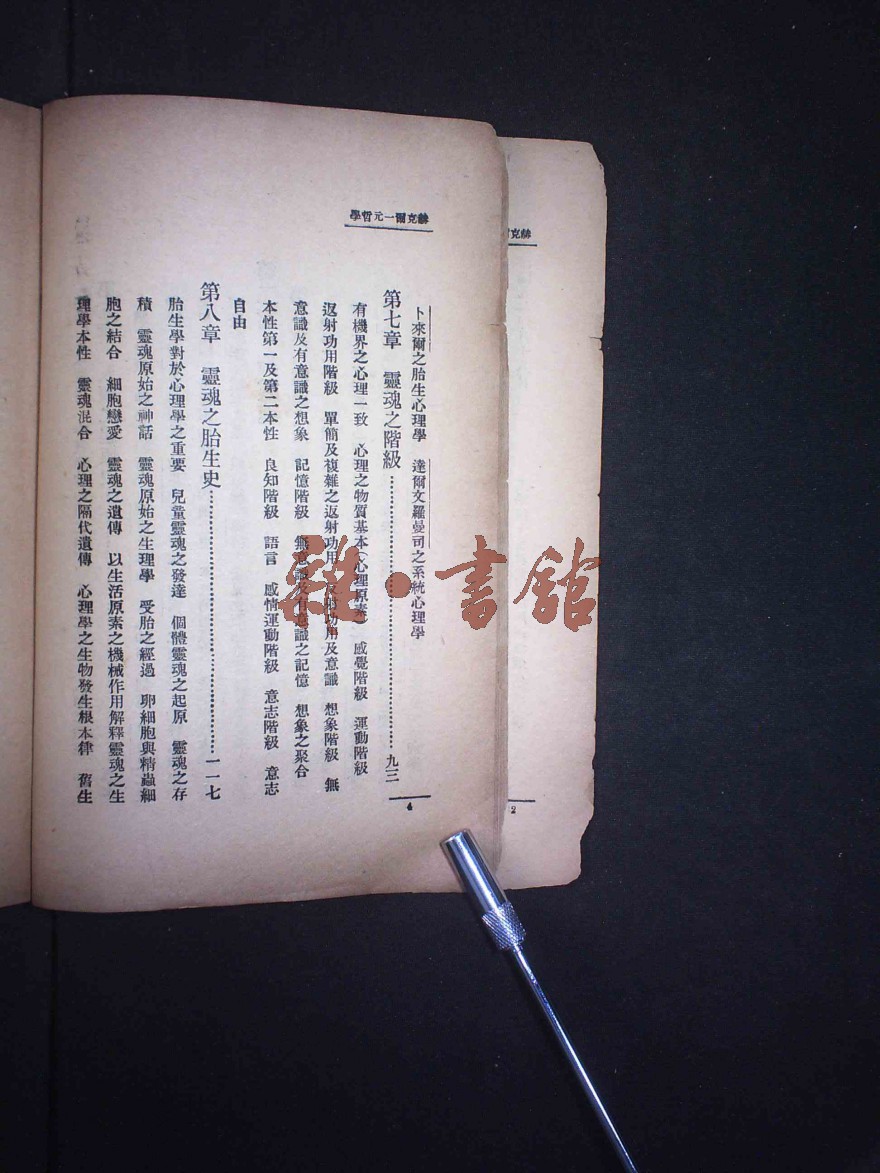 赫克爾一元哲學
卜來爾之胎生心理學　達爾文羅曼司之系統心理學
第七章　靈魂之階級……九三
有機界之心理一致　心理之物質基本(心理原素)　感覺階級　運動階級
返射功用階級　單簡及複雜之返射功用　反射功用及意識　想象階級　無
意識及有意識之想象　記憶階級　無意識及有意識之記憶　想象之聚合
本性第一及第二本性　良知階級　語言　感情運動階級　意志階級　意志
自由
第八章　靈魂之胎生史……一一七
胎生學對於心理學之重要　兒童靈魂之發達　個體靈魂之起原　靈魂之存
積　靈魂原始之神話　靈魂原始之生理學　受胎之經過　卵細胞與精蟲細
胞之結合　細胞戀愛　靈魂之遺傳　以生活原素之機械作用解釋靈魂之生
理學本性　靈魂混合　心理之隔代遺傳　心理學之生物發生根本律　舊生
4
赫克
2
雜·書館